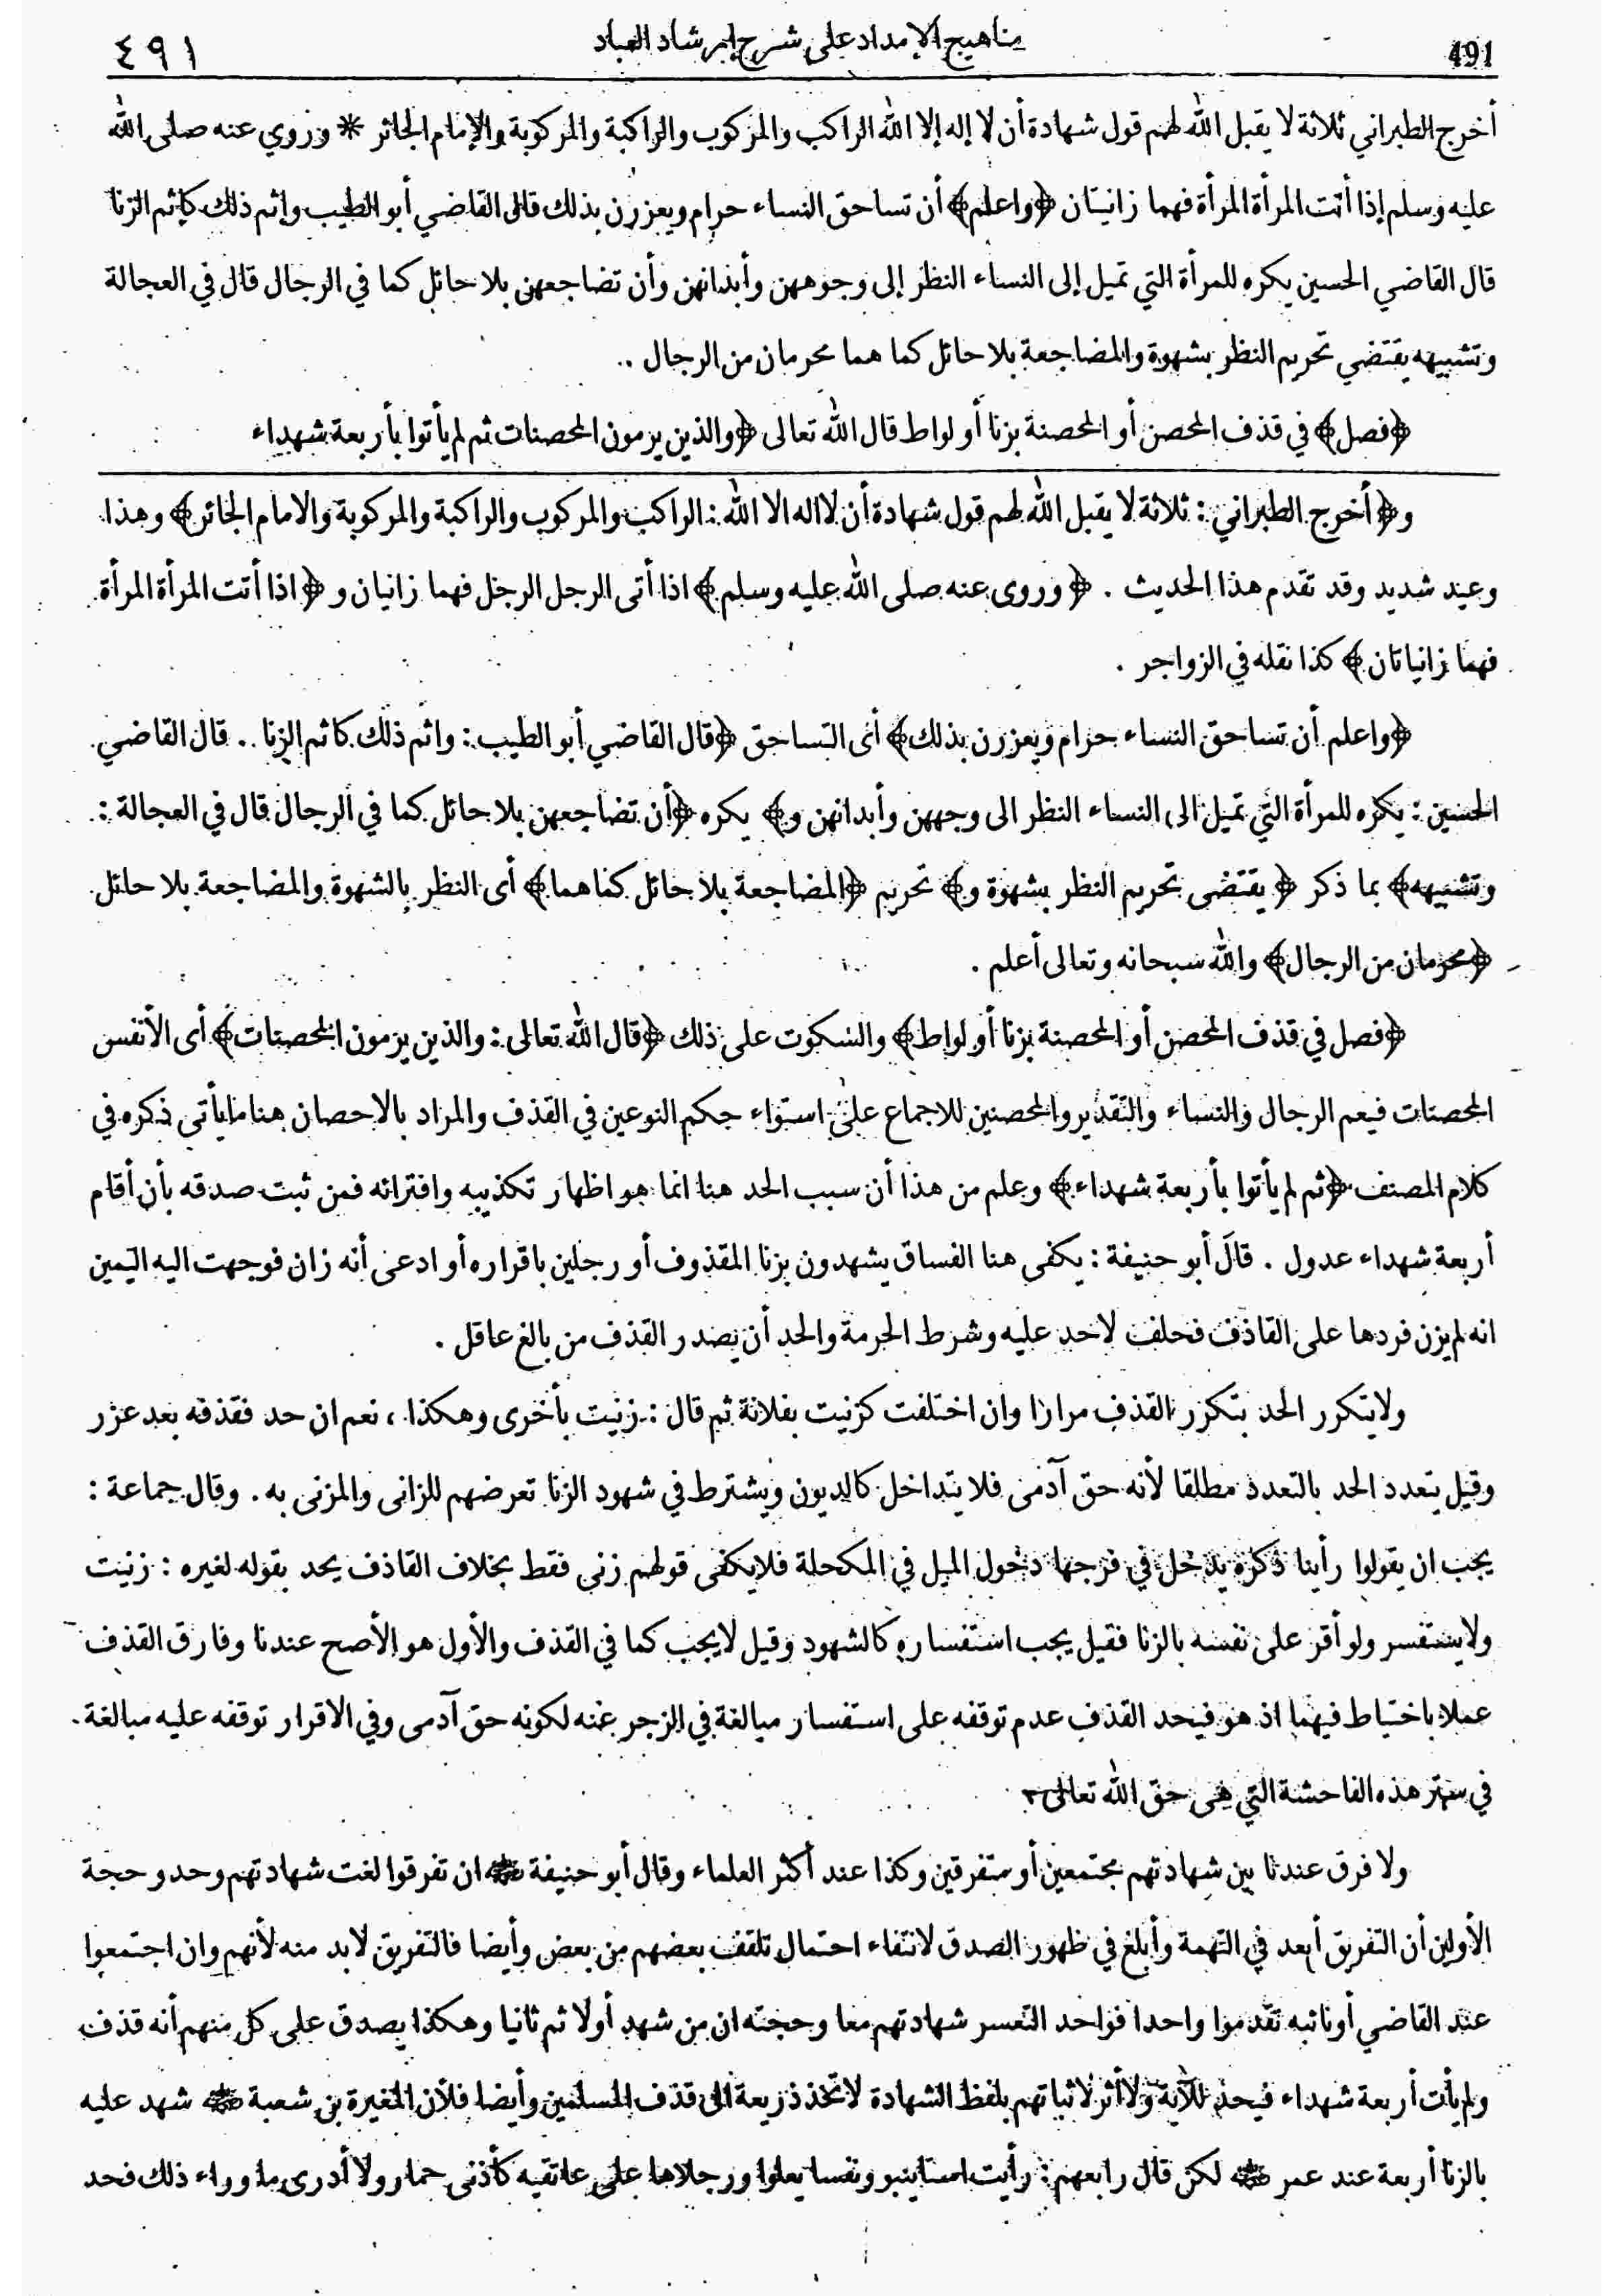 491 مناهيج الإمداد على شرح إرشاد العباد ٤٩١
أخرج الطبراني ثلاثة لا يقبل الله لهم قول شهادة أن لا إله إلا الله الراكب والمركوب والراكبة والمركوبة والإمام الجائر * وروي عنه صلى الله
عليه وسلم إذا أتت المرأة المرأة فهما زانيتان ﴿واعلم﴾ أن تساحق النساء حرام ويعزرن بذلك قال القاضي أبو الطيب وإثم ذلك كإثم الزنا
قال القاضي الحسين يكره للمرأة التي تميل إلى النساء النظر إلى وجوههن وأبدانهن وأن تضاجعهن بلا حائل كما في الرجال قال في العجالة
وتشبيهه يقتضي تحريم النظر بشهوة والمضاجعة بلا حائل كما هما محرمان من الرجال .
﴿فصل﴾ في قذف المحصن أو المحصنة بزنا أو لواط قال الله تعالى ﴿والذين يرمون المحصنات ثم لم يأتوا بأربعة شهداء
و﴿أخرج الطبراني : ثلاثة لا يقبل الله لهم قول شهادة أن لااله الا الله : الراكب والمركوب والراكبة والمركوبة والامام الجائر﴾ وهذا
وعيد شديد وقد تقدم هذا الحديث . ﴿وروى عنه صلى الله عليه وسلم﴾ اذا أتى الرجل الرجل فهما زانيان و ﴿اذا أتت المرأة المرأة
فهما زانياتان﴾ كذا نقله في الزواجر .
﴿واعلم أن تساحق النساء حرام ويعزرن بذلك﴾ أى التساحق ﴿قال القاضي أبو الطيب : واثم ذلك كاثم الزنا . قال القاضي
الحسين : يكره للمرأة التي تميل الى النساء النظر الى وجههن وأبدانهن و﴾ يكره ﴿أن تضاجعهن بلا حائل كما في الرجال قال في العجالة :
وتشبيهه﴾ بما ذكر ﴿يقتضى تحريم النظر بشهوة و﴾ تحريم ﴿المضاجعة بلا حائل كماهما﴾ أى النظر بالشهوة والمضاجعة بلا حائل
﴿محرمان من الرجال﴾ والله سبحانه وتعالى أعلم .
﴿فصل في قذف المحصن أو المحصنة بزنا أو لواط﴾ والسكوت على ذلك ﴿قال الله تعالى : والذين يرمون المحصنات﴾ أى الأنفس
المحصنات فيعم الرجال والنساء والتقدير والمحصنين للاجماع على استواء حكم النوعين في القذف والمراد بالاحصان هنا مايأتى ذكره في
كلام المصنف ﴿ثم لم يأتوا بأربعة شهداء﴾ وعلم من هذا أن سبب الحد هنا انما هو اظهار تكذيبه وافترائه فمن ثبت صدقه بأن أقام
أربعة شهداء عدول . قال أبو حنيفة : يكفى هنا الفساق يشهدون بزنا المقذوف أو رجلين باقراره أو ادعى أنه زان فوجهت اليه اليمين
انه لم يزن فردها على القاذف فحلف لاحد عليه وشرط الحرمة والحد أن يصدر القذف من بالغ عاقل .
ولايتكرر الحد بتكرر القذف مرارا وان اختلفت كزنيت بفلانة ثم قال : زنيت بأخرى وهكذا ، نعم ان حد فقذفه بعد عزر
وقيل يتعدد الحد بالتعدد مطلقا لأنه حق آدمى فلا يتداخل كالديون ويشترط في شهود الزنا تعرضهم للزانى والمزنى به . وقال جماعة :
يجب ان يقولوا رأينا ذكره يدخل في فرجها دخول الميل في المكحلة فلايكفى قولهم زنى فقط بخلاف القاذف يحد بقوله لغيره : زنيت
ولايستفسر ولو أقر على نفسه بالزنا فقيل يجب استفساره كالشهود وقيل لايجب كما في القذف والأول هو الأصح عندنا وفارق القذف
عملا باختياط فيهما اذ هو فيحد القذف عدم توقفه على استفسار مبالغة في الزجر عنه لكونه حق آدمى وفي الاقرار توقفه عليه مبالغة
في ستر هذه الفاحشة التي هى حق الله تعالى
ولا فرق عندنا بين شهادتهم مجتمعين أو متفرقين وكذا عند أكثر العلماء وقال أبو حنيفة ﵁ ان تفرقوا لغت شهادتهم وحد وحجة
الأولين أن التفريق أبعد في التهمة وأبلغ في ظهور الصدق لانتفاء احتمال تلقف بعضهم من بعض وأيضا فالتفريق لابد منه لأنهم وان اجتمعوا
عند القاضي أو نائبه تقدموا واحدا فواحد التعسر شهادتهم معا وحجته ان من شهد أولا ثم ثانيا وهكذا يصدق على كل منهم أنه قذف
ولم يأت أربعة شهداء فيحد للآية ولا أثر لاثباتهم بلفظ الشهادة لاتخذ ذريعة الى قذف المسلمين وأيضا فلأن المغيرة بن شعبة ﵁ شهد عليه
بالزنا أربعة عند عمر ﵁ لكن قال رابعهم : رأيت استا ينبو ونفسا يعلوا ورجلاها على عاتقيه كأذنى حمار ولا أدرى ما وراء ذلك فحد